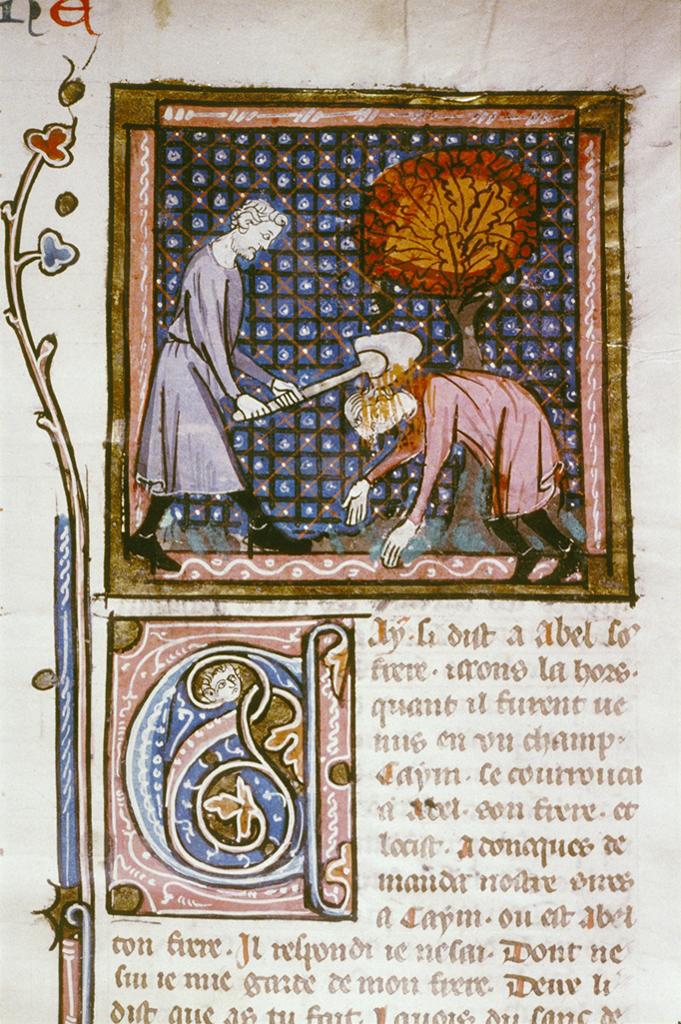 Ay. si dist a Abel so
frere. issons la hors.
quant il furent ve
nus en vn champ.
Caym. se courrouca
a Abel. son frere. et
locist. Adoncques de
manda nostre sires
a Caym. ou est Abel
ton frere. Il respondi ie ne sai. Dont ne
sui ie mie garde de mon frere. Deux li
dist que as tu fait. du sanc de